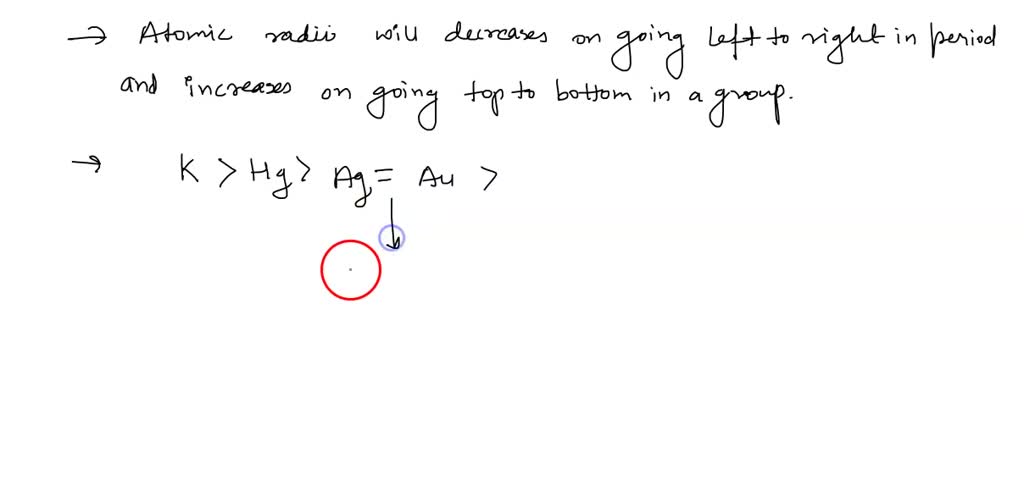 → Atomic radii will decreases on going left to right in period
and increases on going top to bottom in a group.
→ K > Hg > Ag = Au >